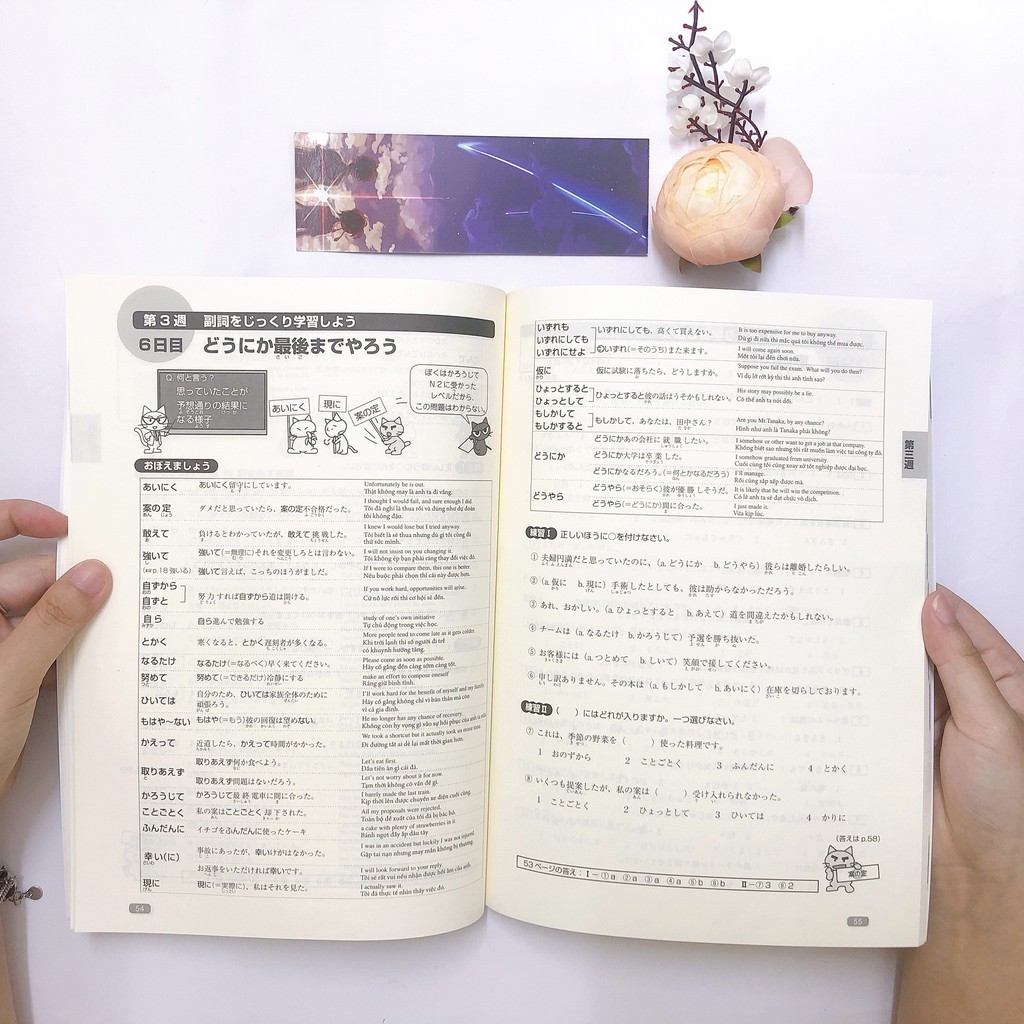 第3週 副詞をじっくり学習しよう
6日目 どうにか最後までやろう
Q 何と言う?
思っていたことが
予想通りの結果に
なる様子
あいにく
現に
案の定
ぼくはかろうじて
N2に受かった
レベルだから、
この問題はわからない
おぼえましょう
あいにく あいにく留守にしています。 Unfortunately he is out.
Thật không may là anh ta đi vắng.
案の定 ダメだと思っていたら、案の定不合格だった。 I thought I would fail, and sure enough I did.
Tôi đã nghĩ là thua rồi và đúng như dự đoán
tôi không đậu.
敢えて 負けるとわかっていたが、敢えて挑戦した。 I knew I would lose but I tried anyway.
Tôi biết là sẽ thua nhưng dù gì tôi cũng đã
thử sức mình.
強いて 強いて(=無理に)それを変更しろとは言わない。 I will not insist on you changing it.
Tôi không ép bạn phải ráng thay đổi việc đó.
(⇨p.18 強いる) 強いて言えば、こっちのほうがましだ。 If I were to compare them, this one is better.
Nếu buộc phải chọn thì cái này được hơn.
自ずから
自ずと 努力すれば自ずから道は開ける。 If you work hard, opportunities will arise.
Cứ nỗ lực rồi thì cơ hội sẽ đến.
自ら 自ら進んで勉強する study of one's own initiative
Tự chủ động trong việc học.
とかく 寒くなると、とかく遅刻者が多くなる。 More people tend to come late as it gets colder.
Khi trời lạnh thì số người đi trễ
có khuynh hướng tăng.
なるたけ なるたけ(=なるべく)早く来てください。 Please come as soon as possible.
Hãy cố gắng đến càng sớm càng tốt.
努めて 努めて(=できるだけ)冷静にする make an effort to compose oneself
Ráng giữ bình tĩnh.
ひいては 自分のため、ひいては家族全体のために
頑張ろう。 I'll work hard for the benefit of myself and my family.
Hãy cố gắng không chỉ vì bản thân mà còn
vì cả gia đình.
もはや~ない もはや(=もう)彼の回復は望めない。 He no longer has any chance of recovery.
Không còn hy vọng gì vào sự hồi phục của anh ta nữa.
かえって 近道したら、かえって時間がかかった。 We took a shortcut but it actually took us more time.
Đi đường tắt ai dè lại mất thời gian hơn.
取りあえず 取りあえず何か食べよう。 Let's eat first.
Đầu tiên ăn gì cái đã.
取りあえず問題はないだろう。 Let's not worry about it for now.
Tạm thời không có vấn đề gì.
かろうじて かろうじて最終電車に間に合った。 I barely made the last train.
Kịp thời lên được chuyến xe điện cuối cùng.
ことごとく 私の案はことごとく却下された。 All my proposals were rejected.
Toàn bộ đề xuất của tôi đã bị bác bỏ.
ふんだんに イチゴをふんだんに使ったケーキ a cake with plenty of strawberries in it
Bánh ngọt đầy ắp dâu tây
幸い(に) 事故にあったが、幸いけがはなかった。 I was in an accident but luckily I was not injured.
Gặp tai nạn nhưng may mắn không bị thương.
お返事をいただければ幸いです。 I will look forward to your reply.
Tôi sẽ rất vui nếu nhận được hồi âm của anh.
現に 現に(=実際に)、私はそれを見た。 I actually saw it.
Tôi đã thực tế nhìn thấy việc đó.
54
いずれも
いずれにしても
いずれにせよ いずれにしても、高くて買えない。 It is too expensive for me to buy anyway.
Dù gì đi nữa thì mắc quá tôi không thể mua được.
いずれ(=そのうち)また来ます。 I will come again soon.
Một lúc nào đó tôi lại đến chơi nữa.
仮に 仮に試験に落ちたら、どうしますか。 Suppose you fail the exam. What will you do then?
Ví dụ lỡ rớt kỳ thi thì anh tính sao?
ひょっとすると
ひょっとして ひょっとすると彼の話はうそかもしれない。 His story may possibly be a lie.
Có thể anh ta nói dối.
もしかして
もしかすると もしかして、あなたは、田中さん? Are you Mr.Tanaka, by any chance?
Hình như anh là Tanaka phải không?
どうにか どうにかあの会社に就職したい。 I somehow or other want to get a job at that company.
Không biết sao nhưng tôi rất muốn làm việc tại công ty đó.
どうにか大学は卒業した。 I somehow graduated from university.
Cuối cùng tôi cũng xoay xở tốt nghiệp được đại học.
どうにかなるだろう。(=何とかなるだろう) I'll manage.
Rồi cũng sắp xếp được mà.
どうやら どうやら(=おそらく)彼が優勝しそうだ。 It is likely that he will win the competition.
Có lẽ anh ta sẽ đạt chức vô địch.
どうやら(=どうにか)間に合った。 I just made it.
Vừa kịp lúc.
第三週
練習Ⅰ 正しいほうに○を付けなさい。
① 夫婦円満だと思っていたのに、(a. どうにか b. どうやら)彼らは離婚したらしい。
② (a. 仮に b. 現に)手術したとしても、彼は助からなかっただろう。
③ あれ、おかしい。(a. ひょっとすると b. あえて)道を間違えたかもしれない。
④ チームは(a. なるたけ b. かろうじて)予選を勝ち抜いた。
⑤ お客様には(a. つとめて b. しいて)笑顔で接してください。
⑥ 申し訳ありません。その本は(a. もしかして b. あいにく)在庫を切らしております。
練習Ⅱ ( )にはどれが入りますか。一つ選びなさい。
⑦ これは、季節の野菜を( )使った料理です。
1 おのずから 2 ことごとく 3 ふんだんに 4 とかく
⑧ いくつも提案したが、私の案は( )受け入れられなかった。
1 ことごとく 2 ひょっとして 3 ひいては 4 かりに
(答えはp.58)
53ページの答え:Ⅰ-①a ②a ③a ④a ⑤b ⑥b Ⅱ-⑦3 ⑧2
案の定
55